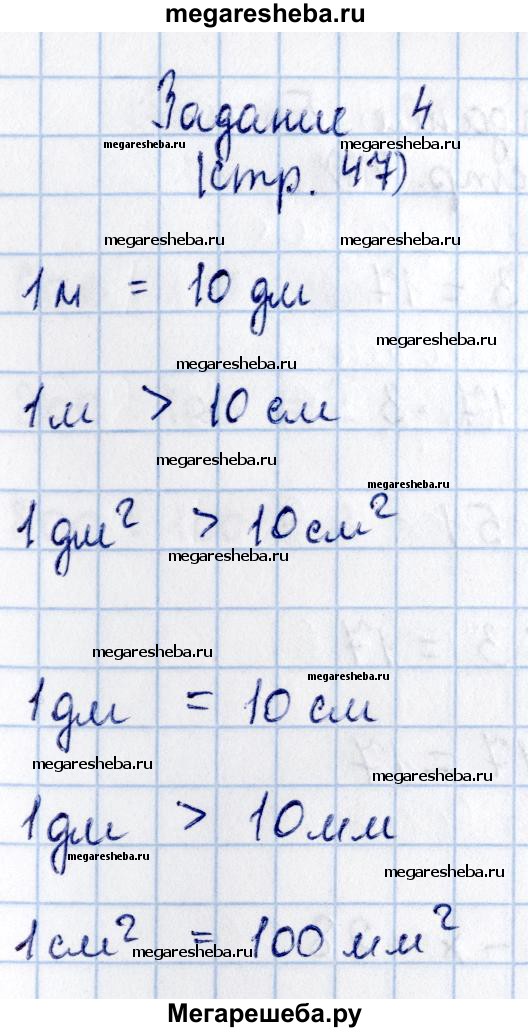 megaresheba.ru
Задание 4
megaresheba.ru megaresheba.ru
(стр. 47)
megaresheba.ru megaresheba.ru
1 м = 10 дм
megaresheba.ru
megaresheba.ru
1 м > 10 см
megaresheba.ru
megaresheba.ru
1 дм² > 10 см²
megaresheba.ru
megaresheba.ru
megaresheba.ru
1 дм = 10 см
megaresheba.ru
megaresheba.ru
1 дм > 10 мм
megaresheba.ru
megaresheba.ru
1 см² = 100 мм²
megaresheba.ru
Мегарешеба.ру